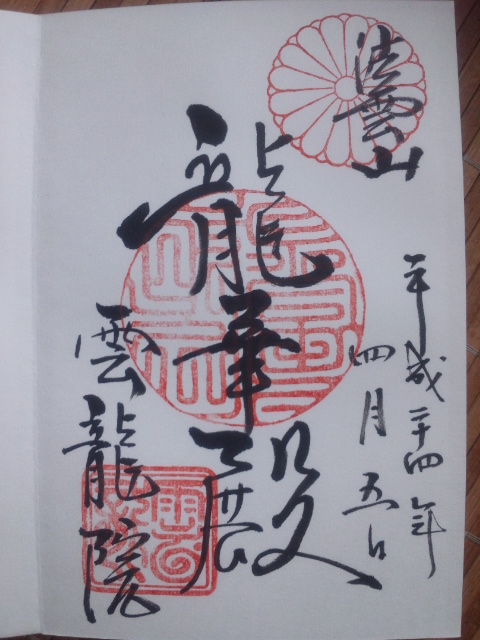 法雲山
平成二十四年
四月五日
龍華殿
雲龍院